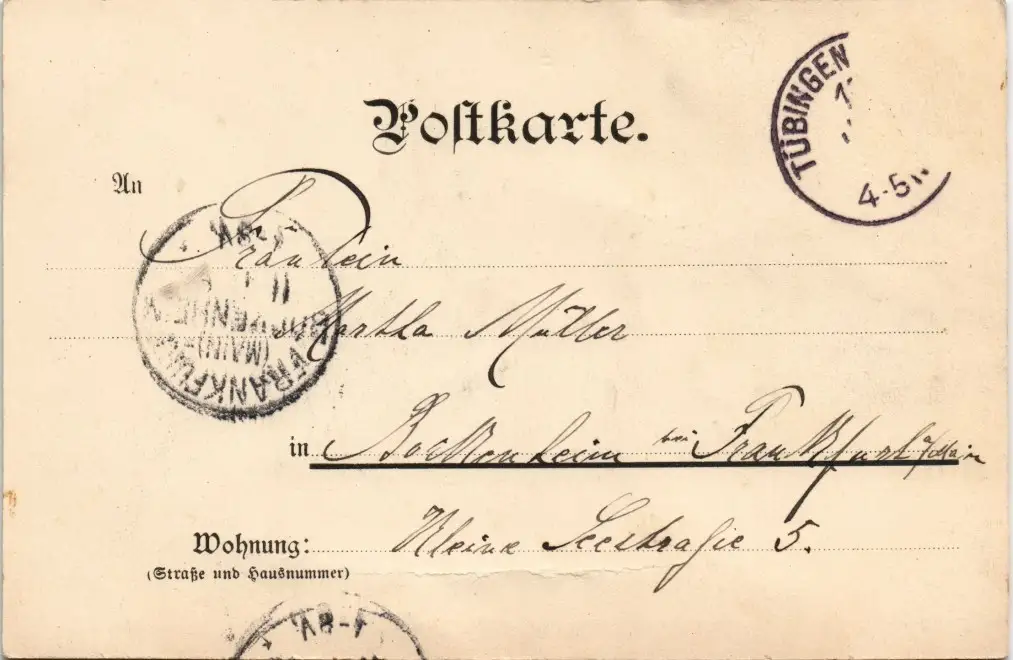 Postkarte.
TÜBINGEN
4-5 N.
An
Fräulein
Martha Müller
in Bockenheim bei Frankfurt a/Main
Wohnung: Kleine Seestraße 5.
(Straße und Hausnummer)
7-8V.
11
BOCKENHEIM
(MAIN)
FRANKFURT
7-8V.